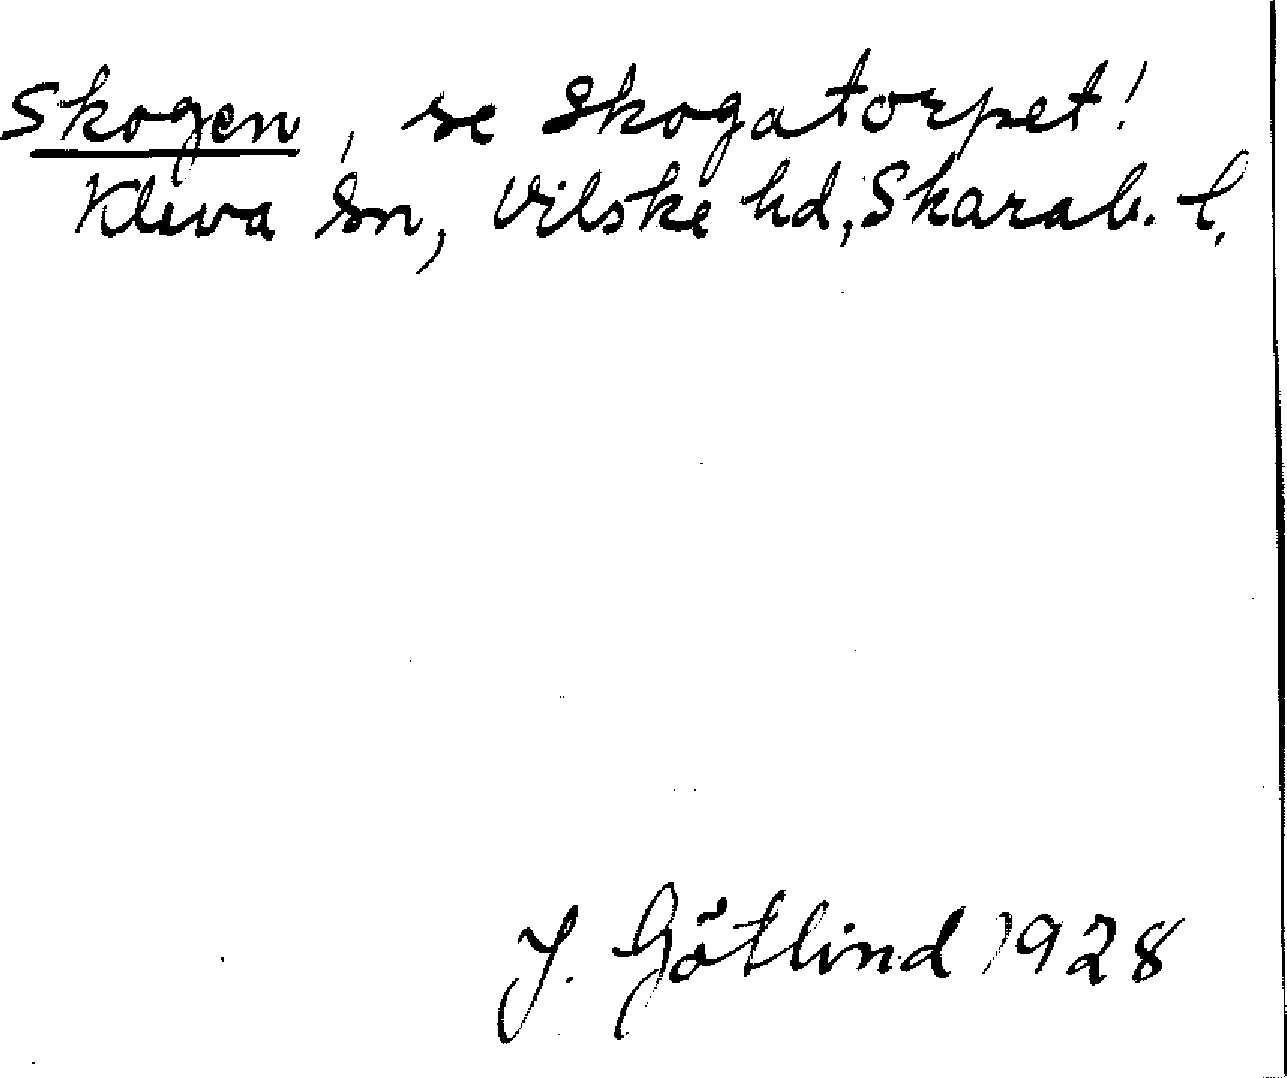 Skogen, se Skogatorpet!
Kleva sn, Vilske hd, Skarab. l.
J. Götlind 1928